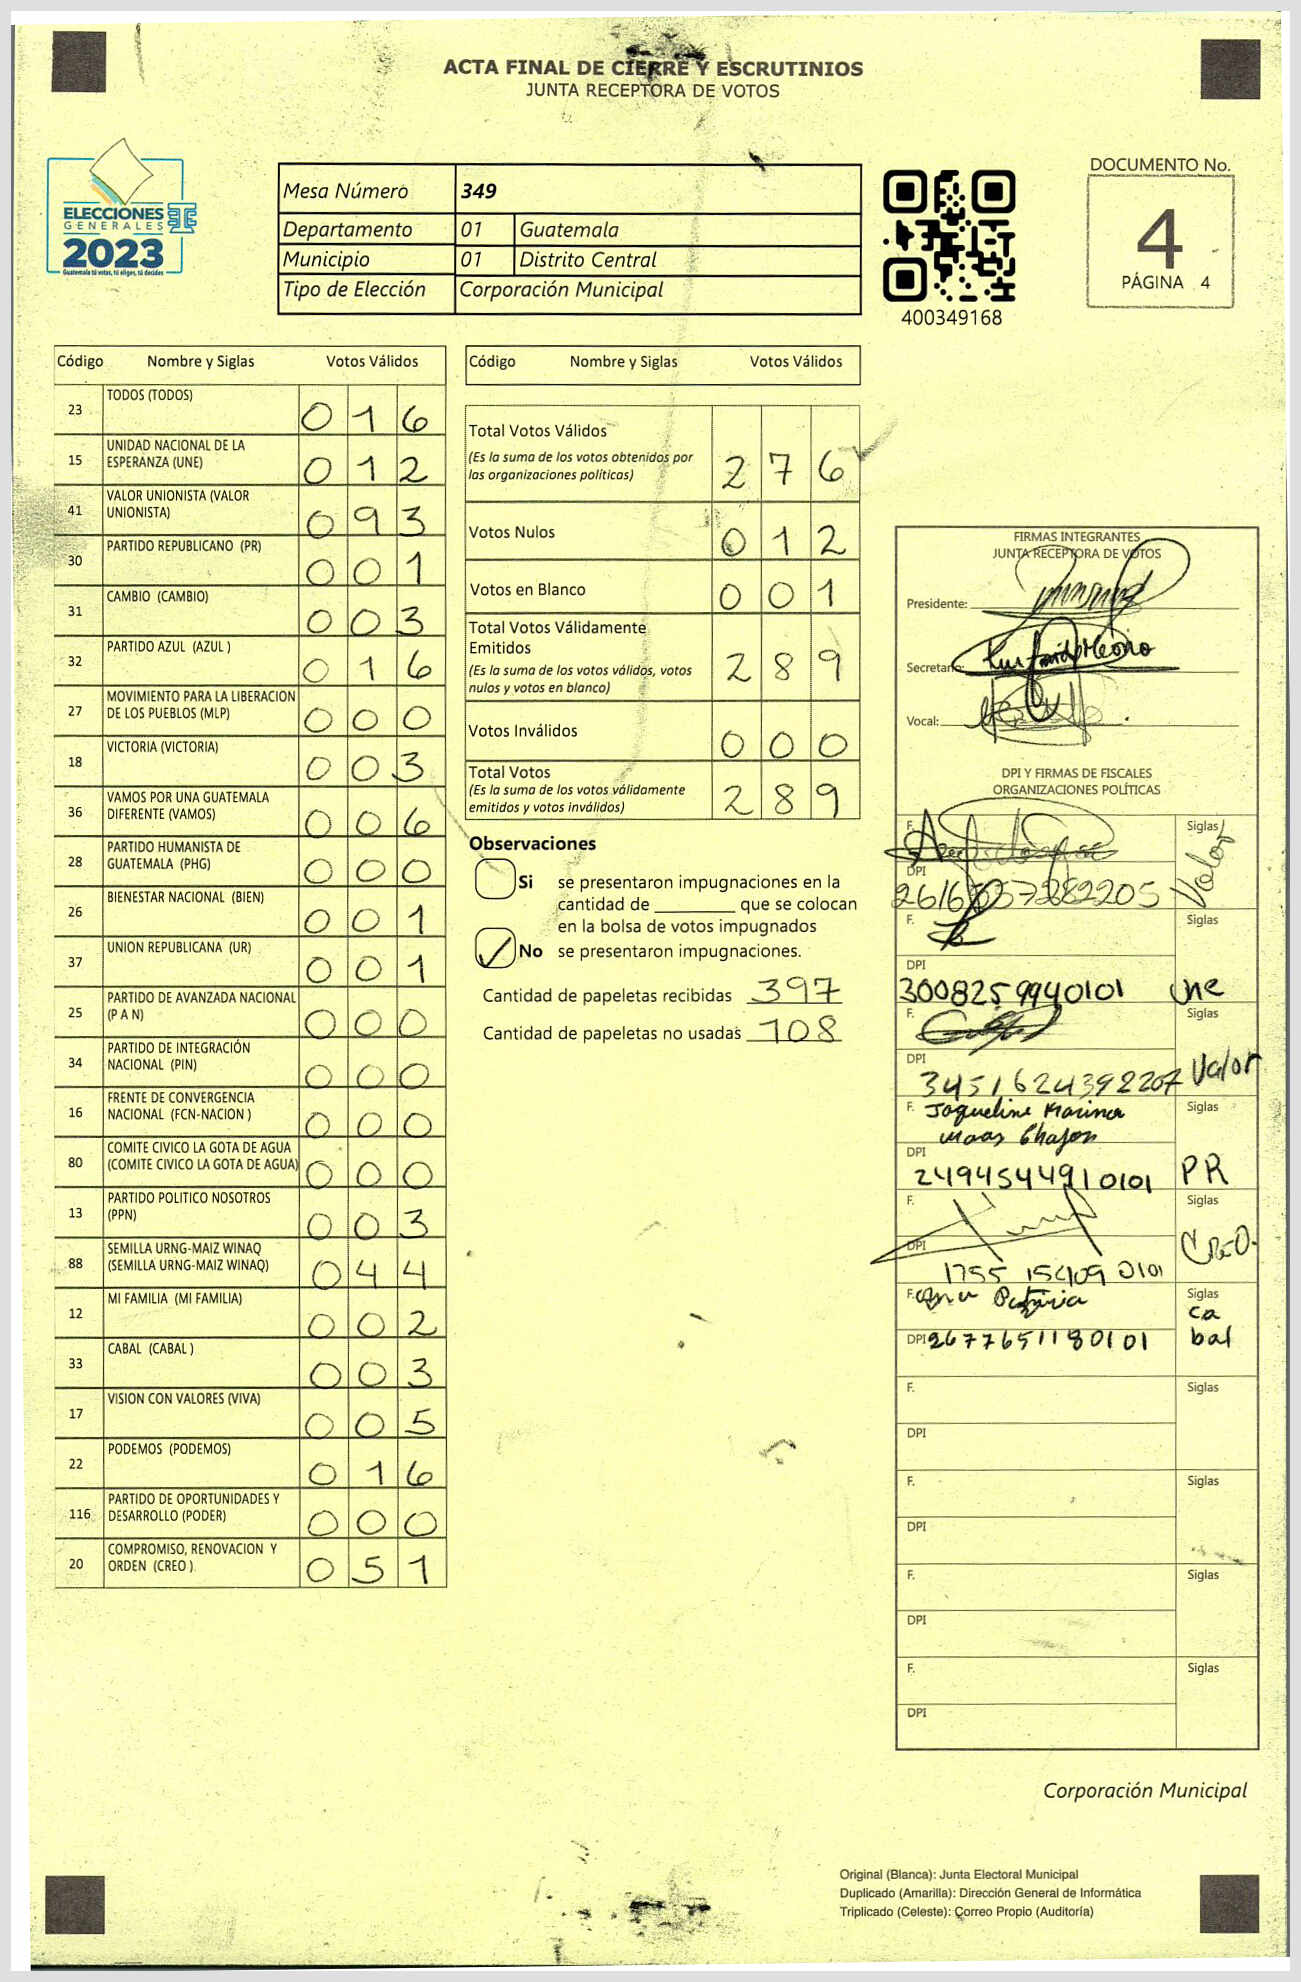 ACTA FINAL DE CIERRE Y ESCRUTINIOS
JUNTA RECEPTORA DE VOTOS
ELECCIONES
GENERALES
2023
Guatemala tú votas, tú eliges, tú decides
Mesa Número 349
Departamento 01 Guatemala
Municipio 01 Distrito Central
Tipo de Elección Corporación Municipal
400349168
DOCUMENTO No.
4
PÁGINA 4
Código Nombre y Siglas Votos Válidos
23 TODOS (TODOS) 016
15 UNIDAD NACIONAL DE LA ESPERANZA (UNE) 012
41 VALOR UNIONISTA (VALOR UNIONISTA) 093
30 PARTIDO REPUBLICANO (PR) 001
31 CAMBIO (CAMBIO) 003
32 PARTIDO AZUL (AZUL ) 016
27 MOVIMIENTO PARA LA LIBERACION DE LOS PUEBLOS (MLP) 000
18 VICTORIA (VICTORIA) 003
36 VAMOS POR UNA GUATEMALA DIFERENTE (VAMOS) 006
28 PARTIDO HUMANISTA DE GUATEMALA (PHG) 000
26 BIENESTAR NACIONAL (BIEN) 001
37 UNION REPUBLICANA (UR) 001
25 PARTIDO DE AVANZADA NACIONAL (P A N) 000
34 PARTIDO DE INTEGRACIÓN NACIONAL (PIN) 000
16 FRENTE DE CONVERGENCIA NACIONAL (FCN-NACION ) 000
80 COMITE CIVICO LA GOTA DE AGUA (COMITE CIVICO LA GOTA DE AGUA) 000
13 PARTIDO POLITICO NOSOTROS (PPN) 003
88 SEMILLA URNG-MAIZ WINAQ (SEMILLA URNG-MAIZ WINAQ) 044
12 MI FAMILIA (MI FAMILIA) 002
33 CABAL (CABAL ) 003
17 VISION CON VALORES (VIVA) 005
22 PODEMOS (PODEMOS) 016
116 PARTIDO DE OPORTUNIDADES Y DESARROLLO (PODER) 000
20 COMPROMISO, RENOVACION Y ORDEN (CREO ) 051
Código Nombre y Siglas Votos Válidos
Total Votos Válidos 276
(Es la suma de los votos obtenidos por
las organizaciones políticas)
Votos Nulos 012
Votos en Blanco 001
Total Votos Válidamente
Emitidos 289
(Es la suma de los votos válidos, votos
nulos y votos en blanco)
Votos Inválidos 000
Total Votos 289
(Es la suma de los votos válidamente
emitidos y votos inválidos)
Observaciones
Si se presentaron impugnaciones en la
cantidad de ________ que se colocan
en la bolsa de votos impugnados
No se presentaron impugnaciones.
Cantidad de papeletas recibidas 397
Cantidad de papeletas no usadas 108
FIRMAS INTEGRANTES
JUNTA RECEPTORA DE VOTOS
Presidente:
Secretario:
Vocal:
DPI Y FIRMAS DE FISCALES
ORGANIZACIONES POLÍTICAS
F. Siglas Valor
DPI
F. Siglas Une
DPI 3008259940101
F. Siglas Valor
DPI 3451624392207
F. Jaqueline Marina Siglas
Maas Chajon
DPI 2494544910101 PR
F. Siglas CREO.
DPI 1755 15409 0101
F. Patricia Siglas
DPI 2677651180101 ca bal
F. Siglas
DPI
F. Siglas
DPI
F. Siglas
DPI
F. Siglas
DPI
Corporación Municipal
Original (Blanca): Junta Electoral Municipal
Duplicado (Amarilla): Dirección General de Informática
Triplicado (Celeste): Correo Propio (Auditoría)